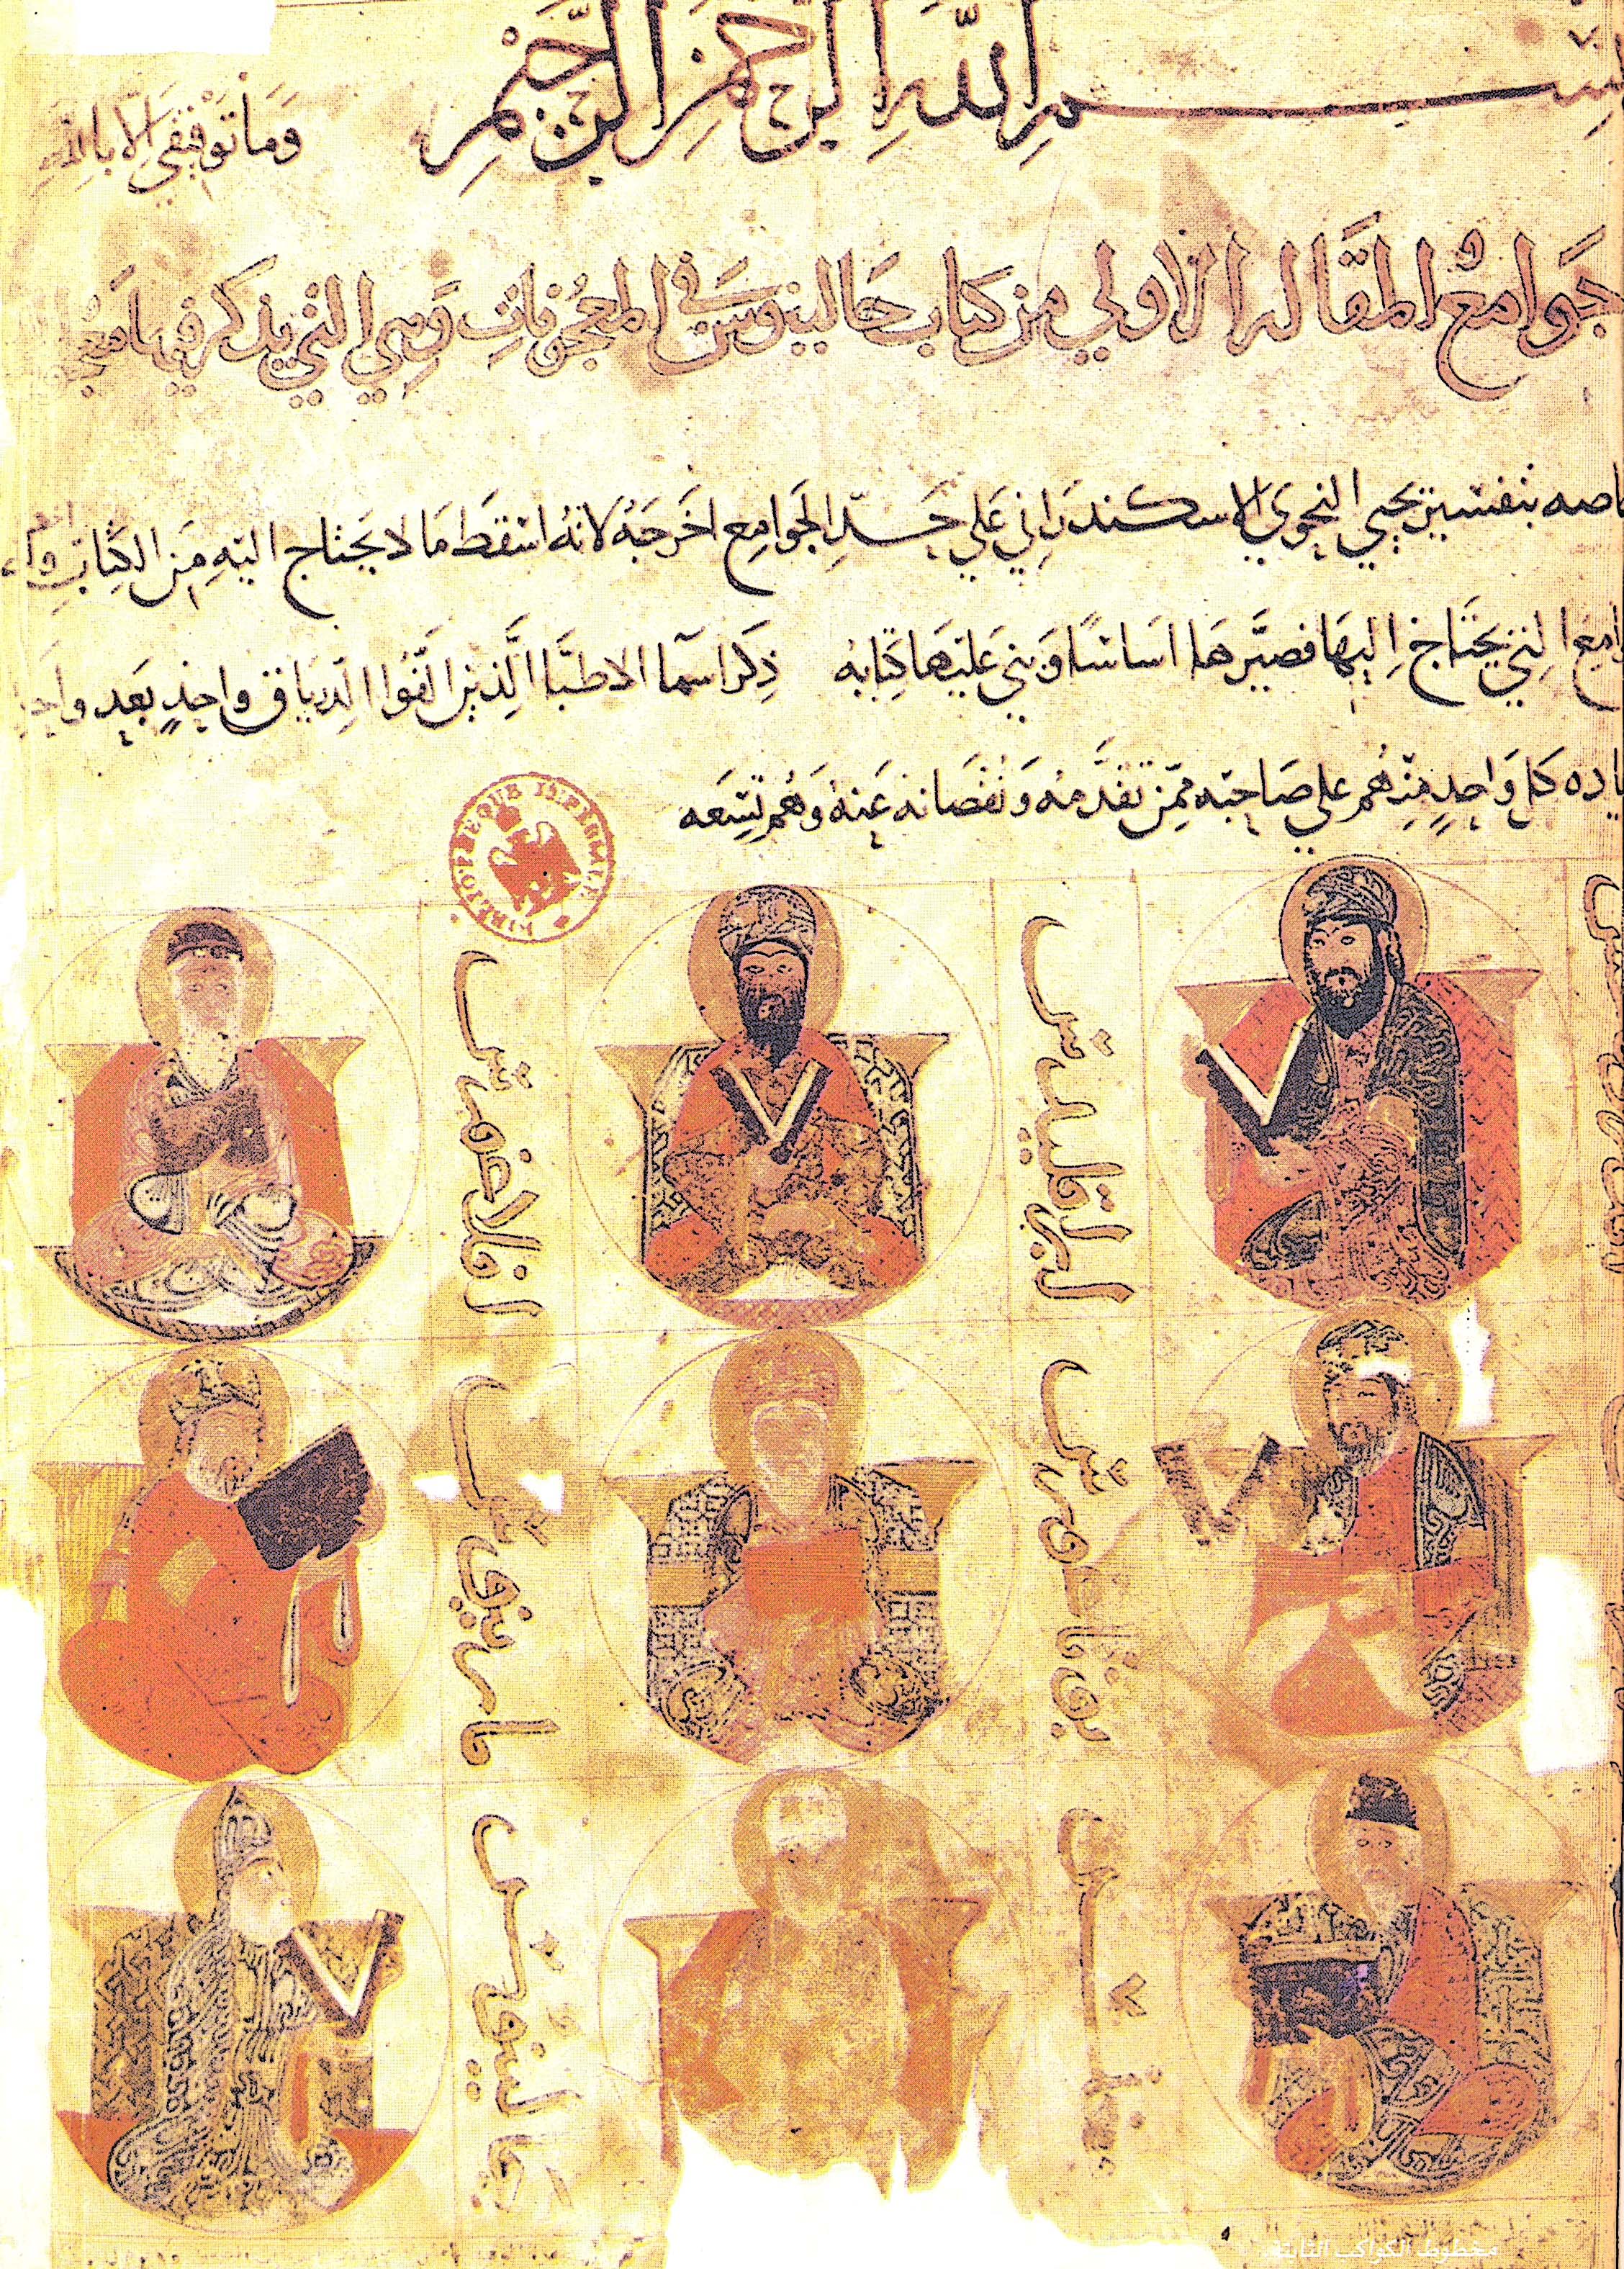 بسم الله الرحمن الرحيم
وَمَا تَوْفيقي الّا باللهِ
جَوامعُ المقَاله الاولي من كتاب جَالينوسَ في المعجُونَاتِ وَهِي التي يذكر فيهَا
بتفسير يحيي النحوي الاسكندَرَاني عَلي حَدِّ الجَوَامِع اخرَجَهُ لانهُ اسْقطَ مَا لا يَحتاج اليْهِ مِنَ الكِتَابِ
التِي يحتَاج اِليهَا فصيَّرهَا اسَاسًا وَبني عَليْهَا كِتَابهُ ذِكر اسمآ الاطبَّا الَّذِين الَّفوُا الدِّريَاق واحِدٍ بَعد واحد
كل وَاحِدٍ منهُم علي صَاحِبه ممَّن تقدَّمهُ وَنقصَانه عَنهُ وَهُم تِسعَه
ابرقليدس
افلاغورس
مارينوس
جالينوس
BIBLIOTHEQUE IMPERIALE
مخطوط الكواكب الثابتة